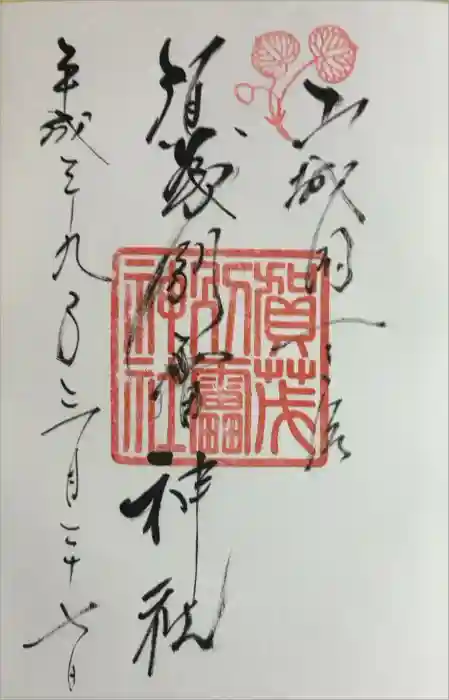 山城国一之宮
賀茂別雷神社
平成二十九年二月二十七日
賀茂
別雷
神社